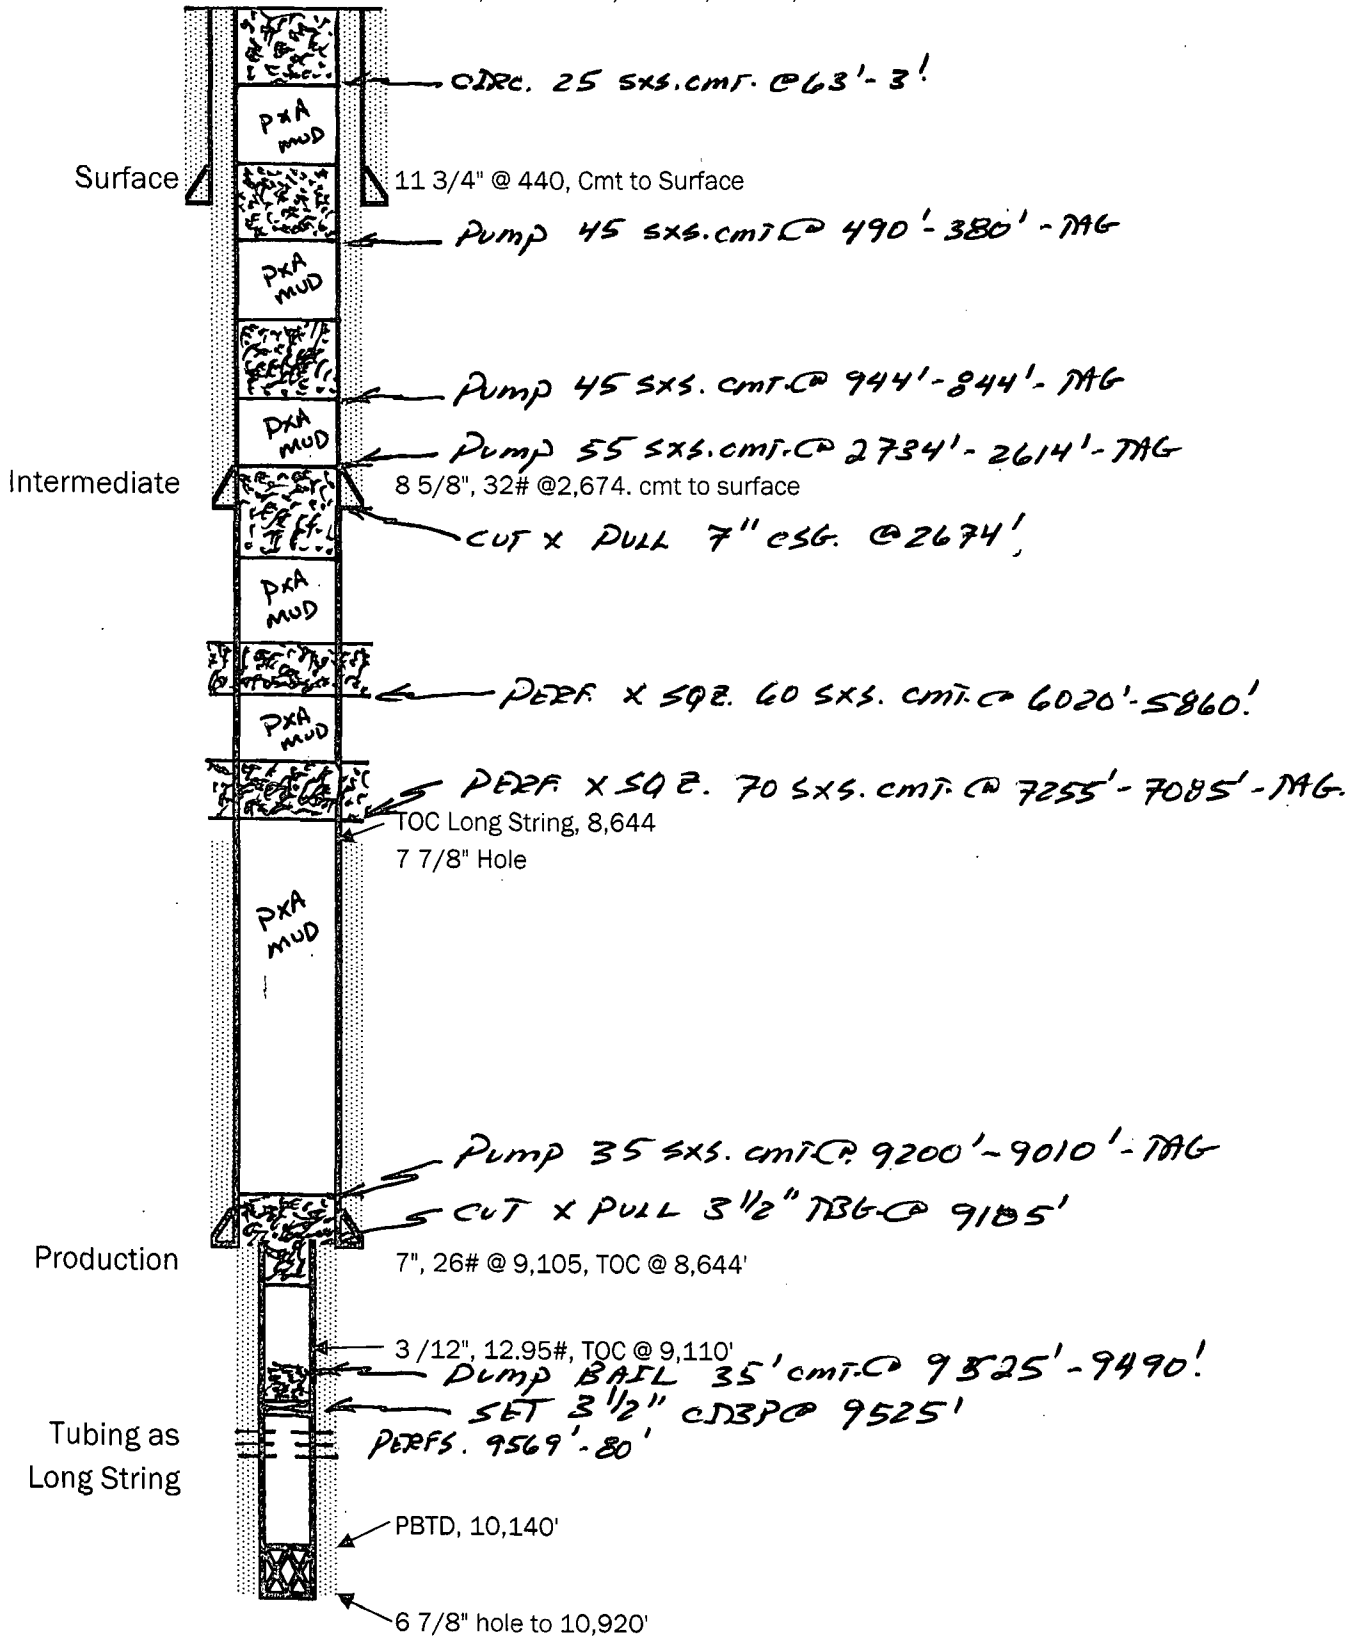 CIRC. 25 SXS. CMT. @ 63' - 3'
PXA MUD
Surface
11 3/4" @ 440, Cmt to Surface
PUMP 45 SXS. CMT @ 490' - 380' - TAG
PXA MUD
PUMP 45 SXS. CMT. @ 944' - 844' - TAG
PXA MUD
PUMP 55 SXS. CMT. @ 2734' - 2614' - TAG
Intermediate
8 5/8", 32# @2,674. cmt to surface
CUT X PULL 7" CSG. @ 2674'
PXA MUD
PERF. X SQZ. 60 SXS. CMT. @ 6020' - 5860'
PXA MUD
PERF. X SQZ. 70 SXS. CMT. @ 7255' - 7085' - TAG.
TOC Long String, 8,644
7 7/8" Hole
PXA MUD
PUMP 35 SXS. CMT. @ 9200' - 9010' - TAG
CUT X PULL 3 1/2" TBG @ 9185'
Production
7", 26# @ 9,105, TOC @ 8,644'
3 /12", 12.95#, TOC @ 9,110'
DUMP BAIL 35' CMT. @ 9525' - 9490'
SET 3 1/2" CIBP @ 9525'
Tubing as
Long String
PERFS. 9569' - 80'
PBTD, 10,140'
6 7/8" hole to 10,920'